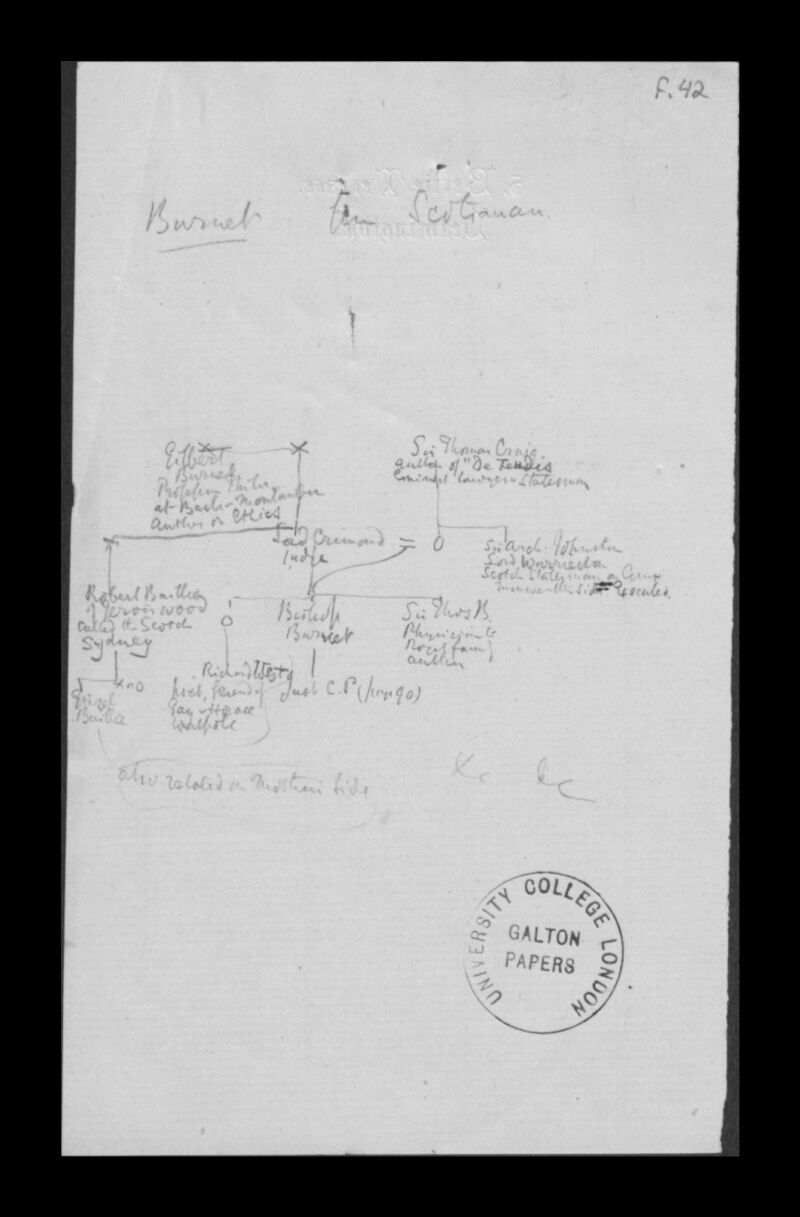 F. 42
5. Bertie Terrace.
Leamington.
Burnet
Scotianam.
Gilbert
Burnet
Professor Philos
at Basle & Montauban
author on Ethics
Sir Thomas Craig
author of "De Feudis
Eminent lawyer & Statesman
Lord Crimond = O
judge
Sir Arch. Johnston
Lord Warriston
Scotch Statesman
Robert Baillie
of Jerviswood
called the Scotch
Sydney
O
Bishop
Burnet
Sir Thos B.
Physician to
Royal family
author
Richard West
poet, friend of
Gay & Horace
Walpole
Just C. P (page 90)
Grizel
Baillie
also related on Mothers side
&c &c
UNIVERSITY COLLEGE LONDON
GALTON
PAPERS